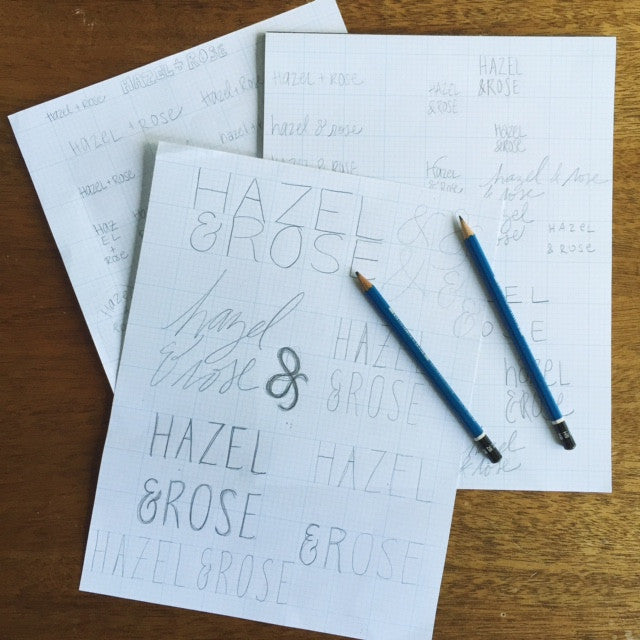 HAZEL & ROSE
hazel + rose
HAZEL + ROSE
hazel + rose
HAZEL + ROSE
HAZ
EL
hazel + rose
hazel & rose
HAZEL
& ROSE
HAZEL
&ROSE
HAZEL
& ROSE
Hazel
& ROSE
hazel & rose
& rose
HAZEL
& ROSE
hazel
& rose
HAZEL
&ROSE
& &
& &
&
hazel
& rose
&
HAZEL
&ROSE
HAZEL
&ROSE
HAZEL
&ROSE
HAZEL &ROSE